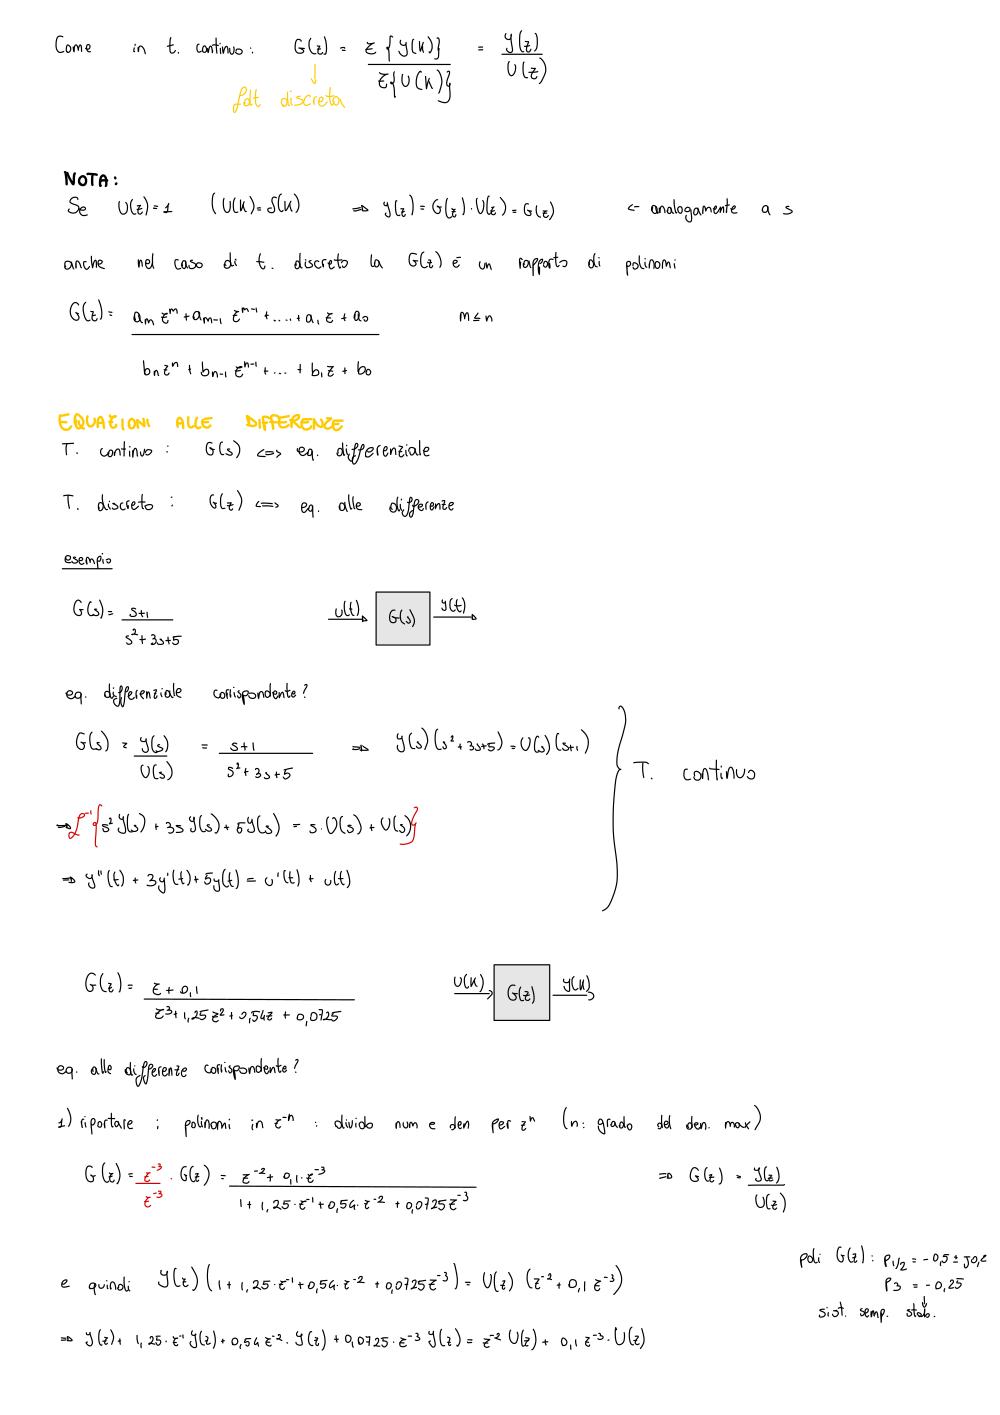 Come in t. continuo : G(z) = Z{y(k)} / Z{U(k)} = Y(z) / U(z)
↓
fdt discreta
NOTA:
Se U(z)=1 (U(k)=δ(k) ⇒ Y(z)=G(z)·U(z)=G(z) ← analogamente a s
anche nel caso di t. discreto la G(z) è un rapporto di polinomi
G(z)= (a_m z^m + a_{m-1} z^{m-1} + .... + a_1 z + a_0) / (b_n z^n + b_{n-1} z^{n-1} + ... + b_1 z + b_0) m≤n
EQUAZIONI ALLE DIFFERENZE
T. continuo : G(s) <=> eq. differenziale
T. discreto : G(z) <=> eq. alle differenze
esempio
G(s)= (s+1) / (s²+3s+5) u(t) G(s) y(t)
eq. differenziale corrispondente?
G(s) = Y(s) / U(s) = (s+1) / (s²+3s+5) ⇒ Y(s)(s²+3s+5)=U(s)(s+1)
T. continuo
⇒ L⁻¹{s² Y(s) + 3s Y(s) + 5Y(s) = s·U(s) + U(s)}
⇒ y''(t) + 3y'(t) + 5y(t) = u'(t) + u(t)
G(z)= (z+0,1) / (z³+1,25 z²+0,54z + 0,0725) U(k) G(z) Y(k)
eq. alle differenze corrispondente?
1) riportare i polinomi in z⁻ⁿ : divido num e den per zⁿ (n: grado del den. max)
G(z) = z⁻³ / z⁻³ · G(z) = (z⁻² + 0,1·z⁻³) / (1 + 1,25·z⁻¹+0,54·z⁻² + 0,0725z⁻³) ⇒ G(z) = Y(z) / U(z)
poli G(z): P_{1/2} = -0,5 ± j0,2
P_3 = -0,25
↓
sist. semp. stab.
e quindi Y(z)(1 + 1,25·z⁻¹+0,54·z⁻² + 0,0725z⁻³) = U(z) (z⁻² + 0,1 z⁻³)
⇒ Y(z) + 1,25·z⁻¹ Y(z) + 0,54 z⁻²·Y(z) + 0,0725·z⁻³ Y(z) = z⁻² U(z) + 0,1 z⁻³·U(z)